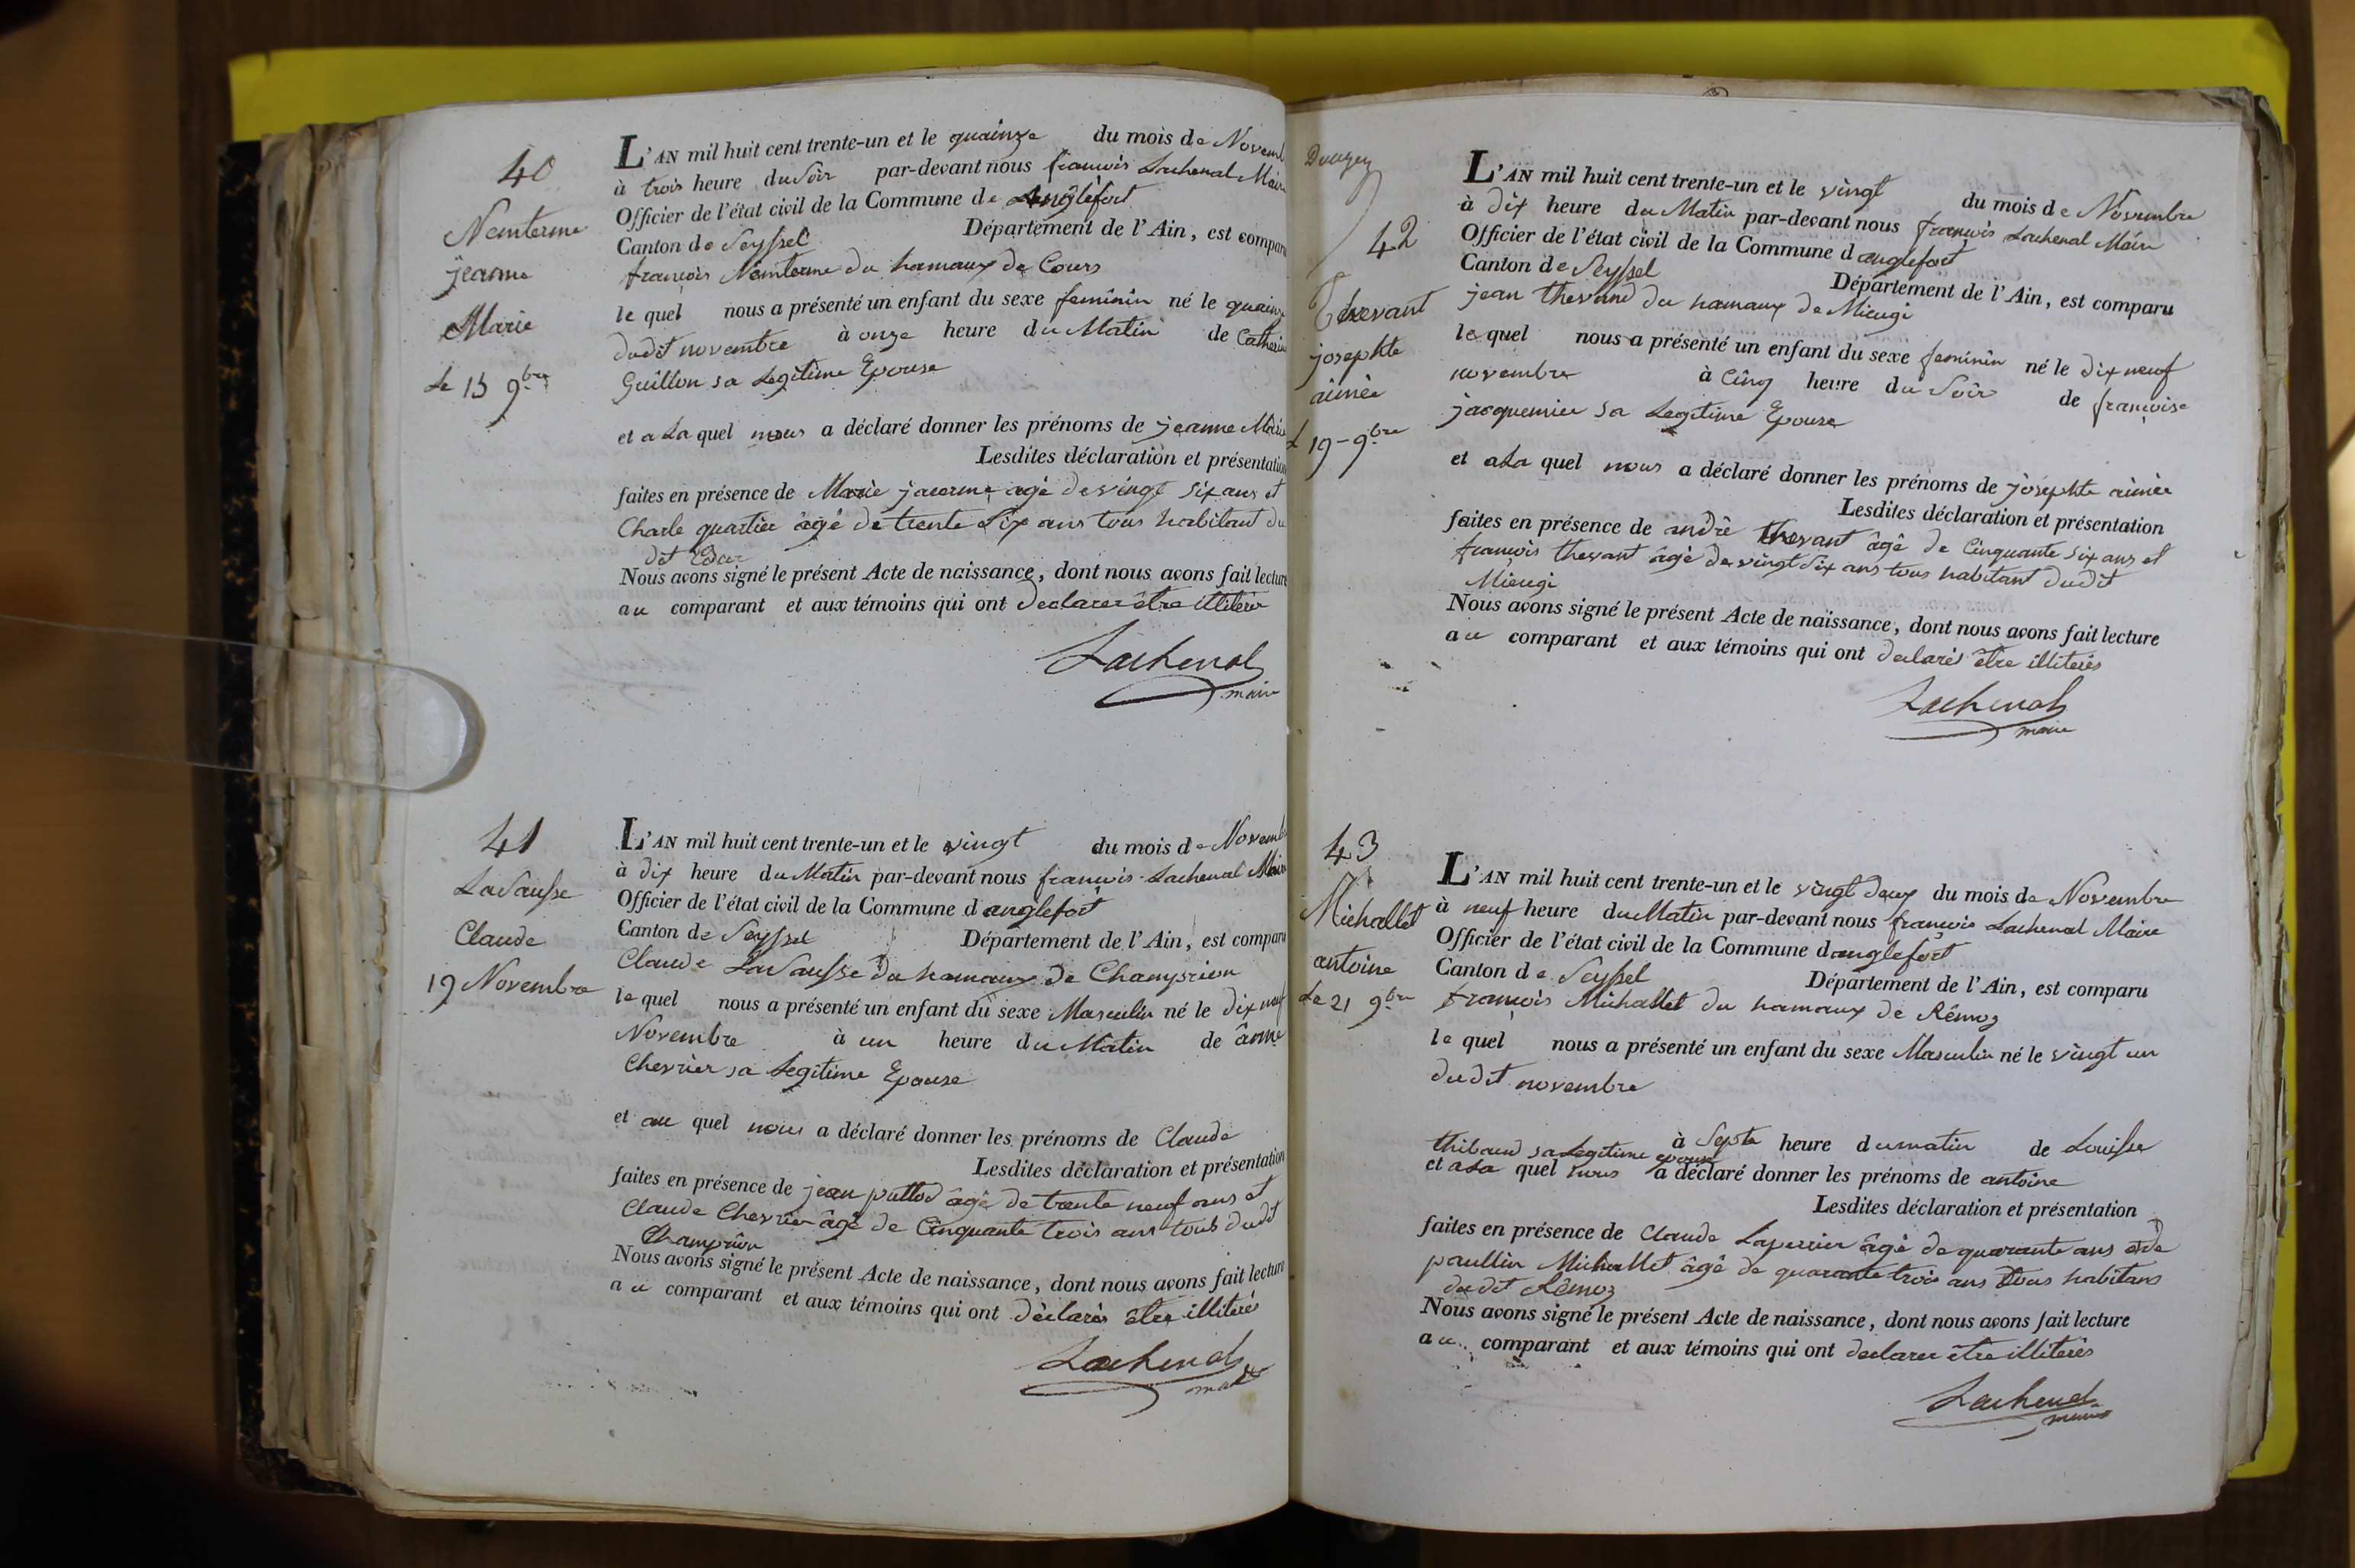 40
Nemterme
jeanne
Marie
Le 15 9bre
L'AN mil huit cent trente-un et le quainze du mois de Novemb
à trois heure du Soir par-devant nous francois Lachenal Mair
Officier de l'état civil de la Commune de Anglefort
Canton de Seyssel Département de l'Ain, est compar
françois Nemterme du hamaux de Cours
le quel nous a présenté un enfant du sexe feminin né le quainz
dudit novembre à onze heure du Matin de Catherin
Guillon sa Legitime Epouse
et a La quel nous a déclaré donner les prénoms de jeanne Marie
Lesdites déclaration et présentation
faites en présence de Marie jacerme agé de vingt six ans et
Charle quartier âgé de trente Six ans tous habitant du
dit
Nous avons signé le présent Acte de naissance, dont nous avons fait lecture
au comparant et aux témoins qui ont declarer être illiterer
Lachenal
maire
41
LaSausse
Claude
19 Novembre
L'AN mil huit cent trente-un et le vingt du mois de Novemb
à dix heure du Matin par-devant nous francois Lachenal Mair
Officier de l'état civil de la Commune d anglefort
Canton de Seyssel Département de l'Ain, est compar
Claude LaSausse du hamaux de Champrion
le quel nous a présenté un enfant du sexe Masculin né le dix neuf
Novembre à un heure du Matin de ânne
Chevrier sa Legitime Epouse
et au quel nous a déclaré donner les prénoms de Claude
Lesdites déclaration et présentation
faites en présence de jean puttod âgé de trente neuf ans et
Claude Chevrier âgé de Cinquante trois ans tous dudit
Champrion
Nous avons signé le présent Acte de naissance, dont nous avons fait lecture
au comparant et aux témoins qui ont déclarés être illiterés
Lachenal
maire
42
Thevant
josephte
aimée
L 19-9bre
L'AN mil huit cent trente-un et le vingt du mois de Novembre
à dix heure du Matin par-devant nous françois Lachenal Maire
Officier de l'état civil de la Commune d anglefort
Canton de Seyssel Département de l'Ain, est comparu
jean thevand du hamaux de Mieugi
le quel nous a présenté un enfant du sexe feminin né le dix neuf
novembre à Cinq heure du Soir de francoise
jacquemier sa Legitime Epouse
et a La quel nous a déclaré donner les prénoms de josephte aimée
Lesdites déclaration et présentation
faites en présence de andré thevant âgé de Cinquante six ans et
francois thevant âgé de vingt Six ans tous habitant dudit
Mieugi
Nous avons signé le présent Acte de naissance, dont nous avons fait lecture
au comparant et aux témoins qui ont declarés être illiterés
Lachenal
maire
43
Michallet
antoine
Le 21 9bre
L'AN mil huit cent trente-un et le vingt deux du mois de Novembre
à neuf heure du Matin par-devant nous françois Lachenal Maire
Officier de l'état civil de la Commune d anglefort
Canton de Seyssel Département de l'Ain, est comparu
françois Michallet du hamaux de Rémoz
le quel nous a présenté un enfant du sexe Masculin né le vingt un
dudit novembre
à Septe heure du matin de Louisse
thibaud sa Legitime epouse
et a La quel nous a déclaré donner les prénoms de antoine
Lesdites déclaration et présentation
faites en présence de Claude Laperrier âgé de quarante ans et de
paullin Michallet âgé de quarante trois ans tous habitans
dudit Rémoz
Nous avons signé le présent Acte de naissance, dont nous avons fait lecture
au comparant et aux témoins qui ont declarer être illiterés
Lachenal
maire